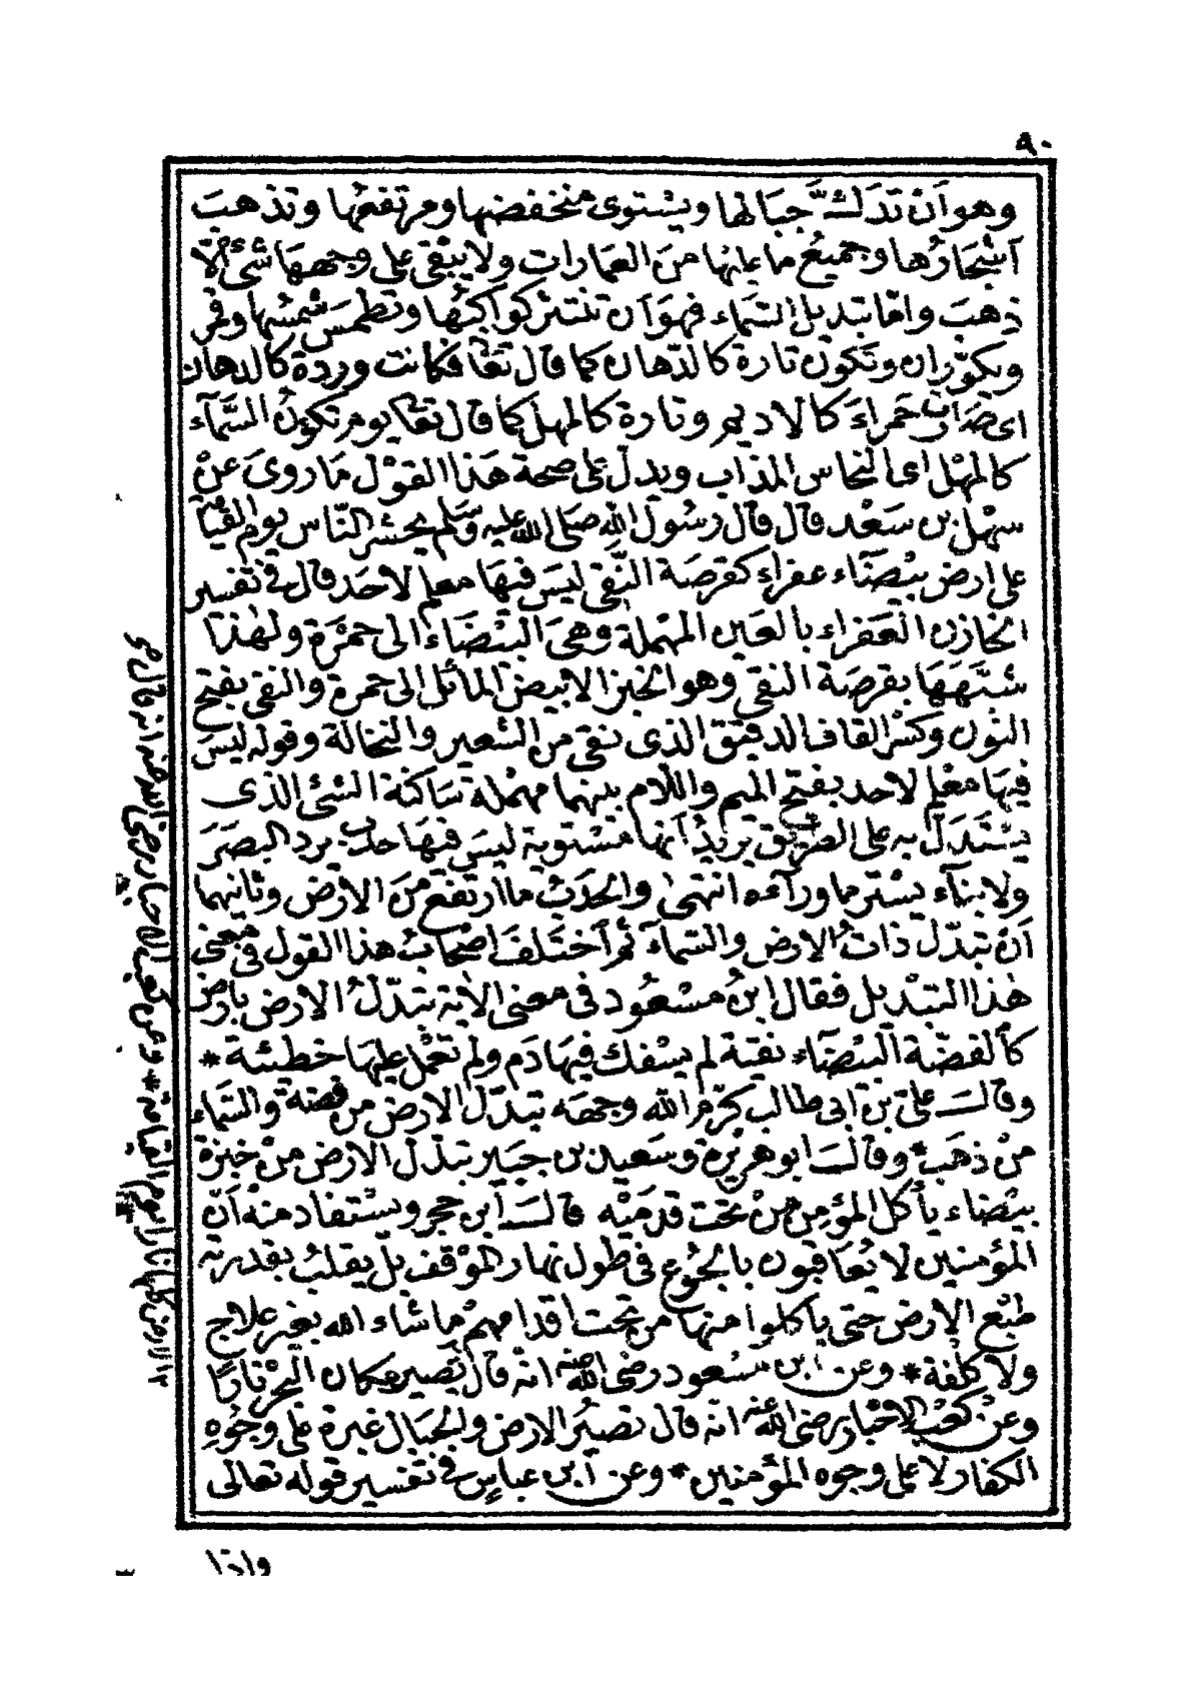 ٩٠
وهو أن تدك جبالها ويستوى منخفضها ومرتفعها وتذهب
أشجارها وجميع ما عليها من العمارات ولا يبقى على وجهها شئ إلا
ذهب واما تبديل السماء فهو أن تنتثر كواكبها وتطمس شمسها وقمر
ويكوّران وتكون تارة كالدهان كما قال تعالى فكانت وردة كالدهان
اى صارت حمراء كالاديم وتارة كالمهل كما قال تعالى يوم تكون السماء
كالمهل اى النحاس المذاب ويدل على صحة هذا القول ما روى عن
سهل بن سعد قال قال رسول الله صلى الله عليه وسلم يحشر الناس يوم القيامة
على ارض بيضاء عفراء كقرصة النقى ليس فيها معلم لاحد قال فى تفسير
الخازن العفراء بالعين المهملة وهى البيضاء الى حمرة ولهذا
شبهها بقرصة النقى وهو الخبز الابيض المائل الى حمرة والنقى بفتح
النون وكسر القاف الدقيق الذى نقى من الشعير والنخالة وقوله ليس
فيها معلم لاحد بفتح الميم واللام بينهما مهملة ساكنة الشئ الذى
يستدل به على الطريق يريد أنها مستوية ليس فيها حدب يرد البصر
ولا بناء يستر ما وراءه انتهى والحدب ما ارتفع من الارض وثانيهما
أن تبدل ذات الارض والسماء ثم أختلف اصحاب هذا القول فى معنى
هذا التبديل فقال ابن مسعود فى معنى الاية تبدّل الارض بارض
كالفضة البيضاء نقية لم يسفك فيها دم ولم تعمل عليها خطيئة *
وقال على بن ابى طالب كرّم الله وجهه تبدّل الارض من فضة والسماء
من ذهب * وقال ابو هريرة وسعيد بن جبير تبدّل الارض من خبزة
بيضاء يأكل المؤمن من تحت قدميه قال ابن حجر ويستفاد منه أنّ
المؤمنين لا يعاقبون بالجوع فى طول نهار الموقف بل يقلب بقدرته
طبع الارض حتى يأكلوا منها من تحت اقدامهم ما شاء الله بغير علاج
ولا كلفة * وعن ابن مسعود رضى الله عنه انه قال تصير مكان البحر نارًا
وعن كعب الاحبار رضى الله عنه انه قال تصير الارض والجبال غبرة على وجوه
الكفار لا على وجوه المؤمنين * وعن ابن عباس فى تفسير قوله تعالى
واذا